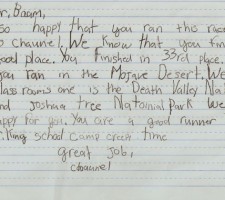 r. Boam,
so happy that you ran this race
o chaunel. We Know that you fin
good place. You finished in 33rd place.
you ran in the Mojave Desert. We
lass rooms one is the Death Valley Nat
nd Joshua tree Natoinial Park we
appy for you. You are a good runner
r. King school camp creek time
great job,
chaunel